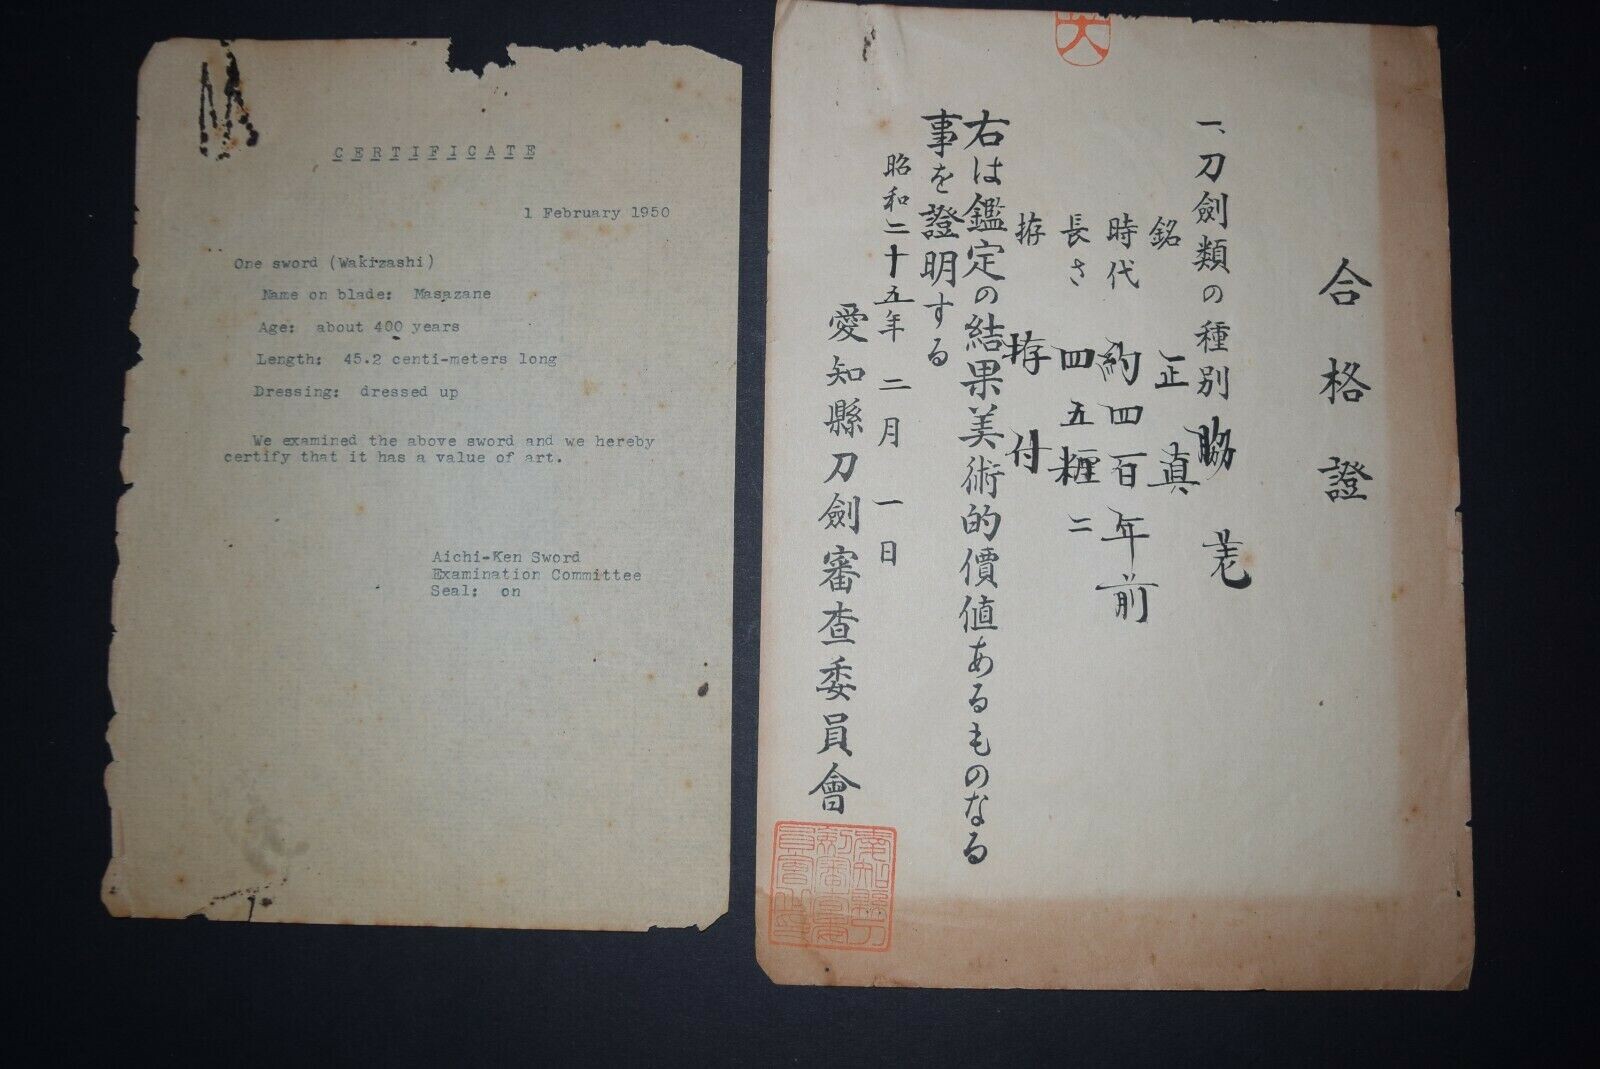 CERTIFICATE
1 February 1950
One sword (Wakizashi)
Name on blade: Masazane
Age: about 400 years
Length: 45.2 centi-meters long
Dressing: dressed up
We examined the above sword and we hereby
certify that it has a value of art.
Aichi-Ken Sword
Examination Committee
Seal: on
合格證
一、刀劍類の種別 脇差
銘 正真
時代 約四百年前
長さ 四五糎二
拵 拵付
右は鑑定の結果美術的價値あるものなる
事を證明する
昭和二十五年 二月 一日
愛知縣刀劍審査委員會